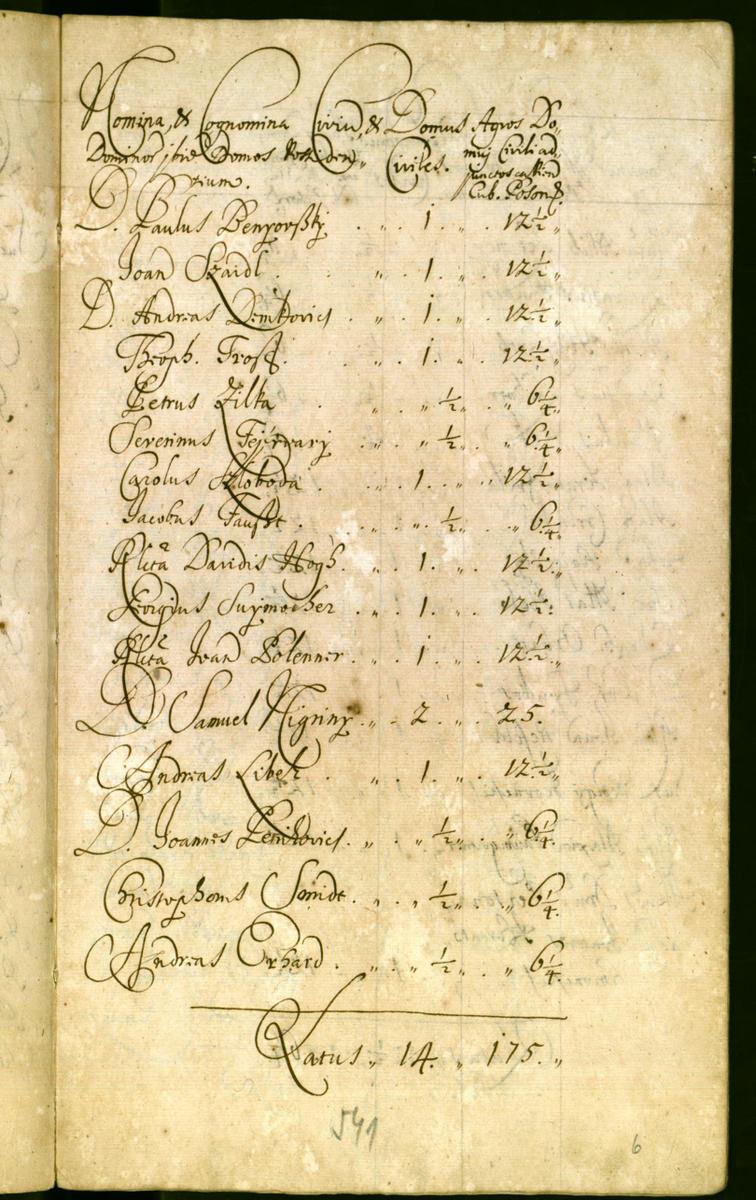 Nomina, & Cognomina Civiu, & Domus Agros Do-
Dominor ibid Domos Civiles. mui Civili ad-
tium. junctos
Cub. Poson.
D. Paulus Benyovßky . . 1. „ . 12½„
Joan Szaidl . „ . 1. „ . 12½„
D. Andreas Demkovics . „ . 1. „ . 12½„
Theoph. Trost . „ . 1. „ . 12½„
Petrus Zilka . „ . „ ½„ . „ 6¼„
Severinus Fejérvarÿ . „ . „ ½„ . „ 6¼„
Carolus Szloboda . „ . 1. „ . 12½„
Jacobus Faußt . „ . „ ½„ . „ 6¼„
Rlicta Davidis Hogh . „ . 1. „ . 12½„
Georgius Suÿmocher . „ . 1. „ . 12½„
Rlicta Joan Polenner . „ . 1 . „ . 12½„
D. Samuel Nigrinÿ . „ . 2 . „ . 25.
Andreas Libek . „ . 1. „ . 12½„
D. Joannes Petrikovics . „ . „ ½„ . „ 6¼.
Christophorus Smidt . „ . „ ½„ . „ 6¼.
Andreas Erhard . „ . „ ½„ . „ 6¼.
Latus „ 14. „ 175. „
541
6